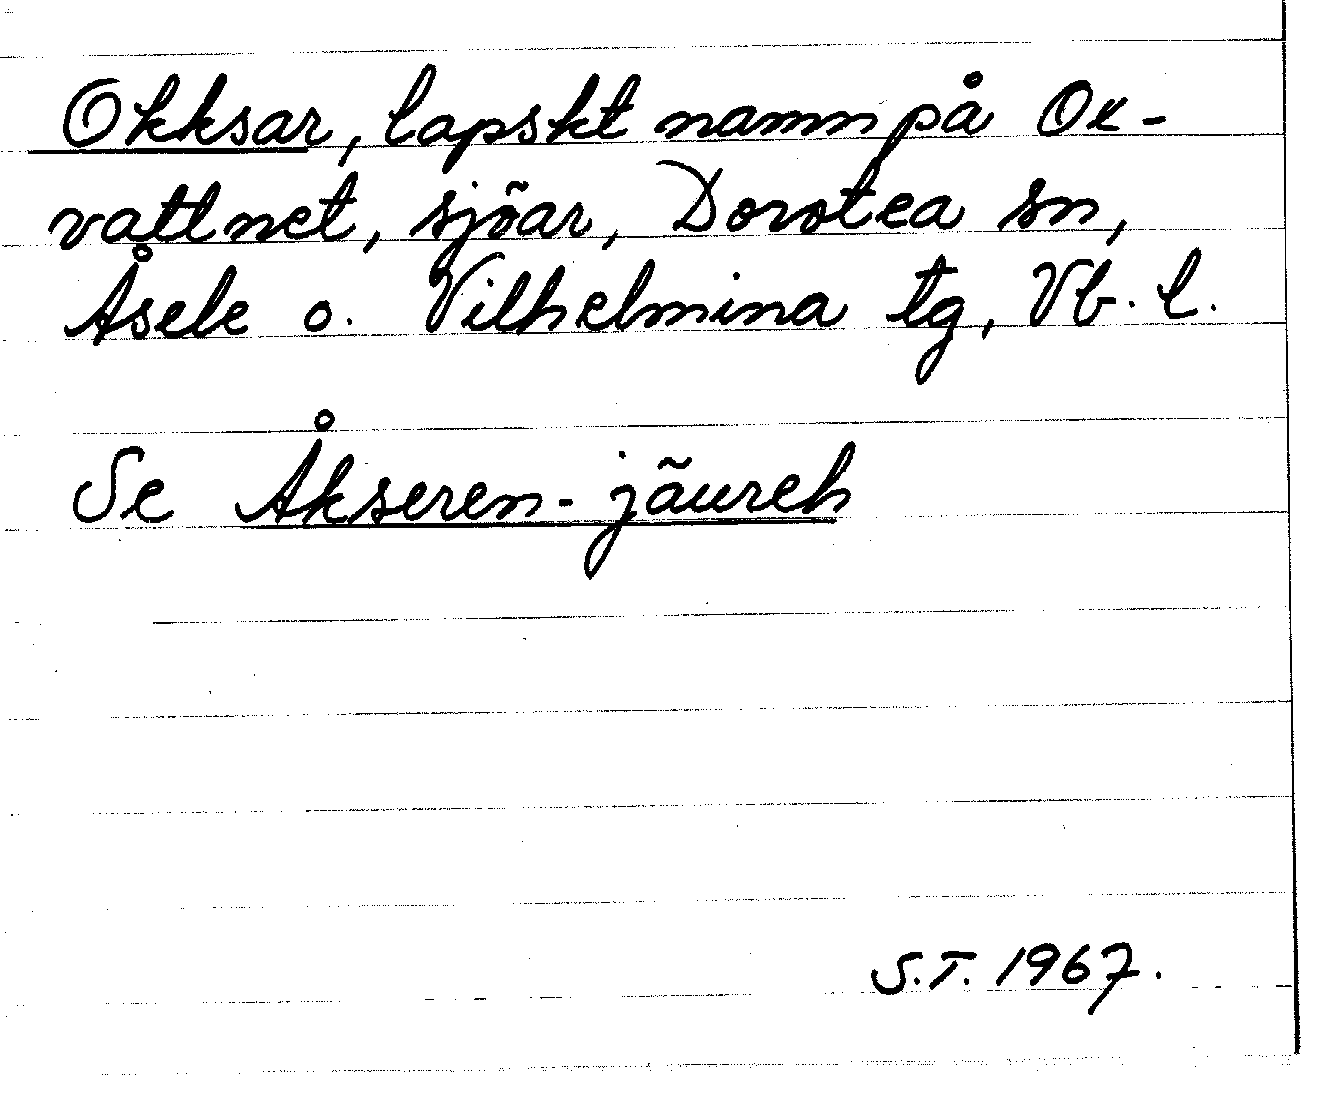 Okksar, lapskt namn på Ox-
vattnet, sjöar, Dorotea sn,
Åsele o. Vilhelmina tg, Vb. l.
Se Åkseren-jäureh
S.T. 1967.